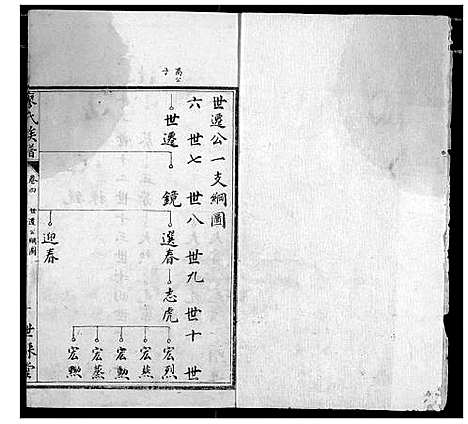 世遷公一支綱圖
六世 七世 八世 九世 十世
萬公子
世遷 鏡 選春 志虎 宏烈
宏燕
宏勳
宏蒸
宏勲
迎春
廖氏族譜 卷四 世遷公綱圖 一 世綵堂